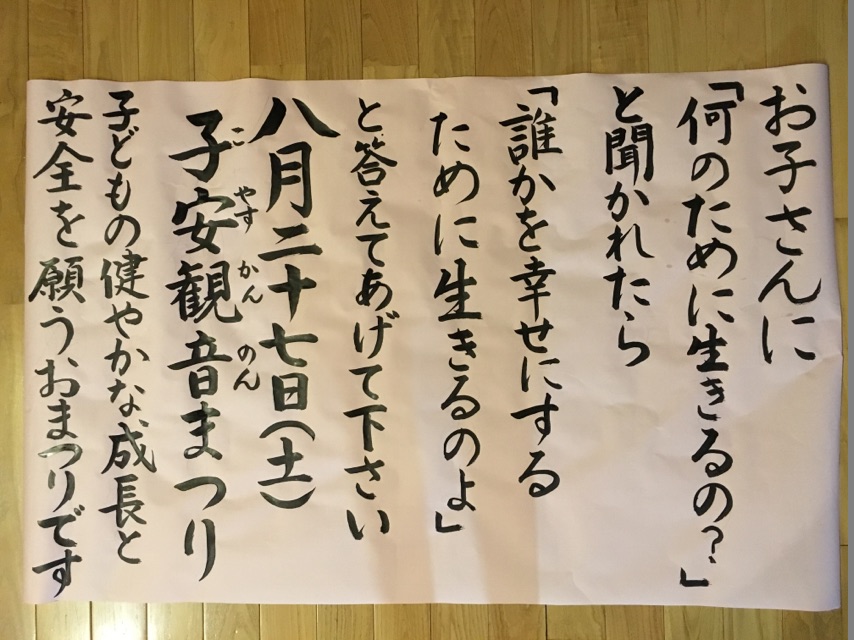 お子さんに
「何のために生きるの？」
と聞かれたら
「誰かを幸せにする
ために生きるのよ」
と答えてあげて下さい
八月二十七日（土）
こやすかんのん
子安観音まつり
子どもの健やかな成長と
安全を願うおまつりです